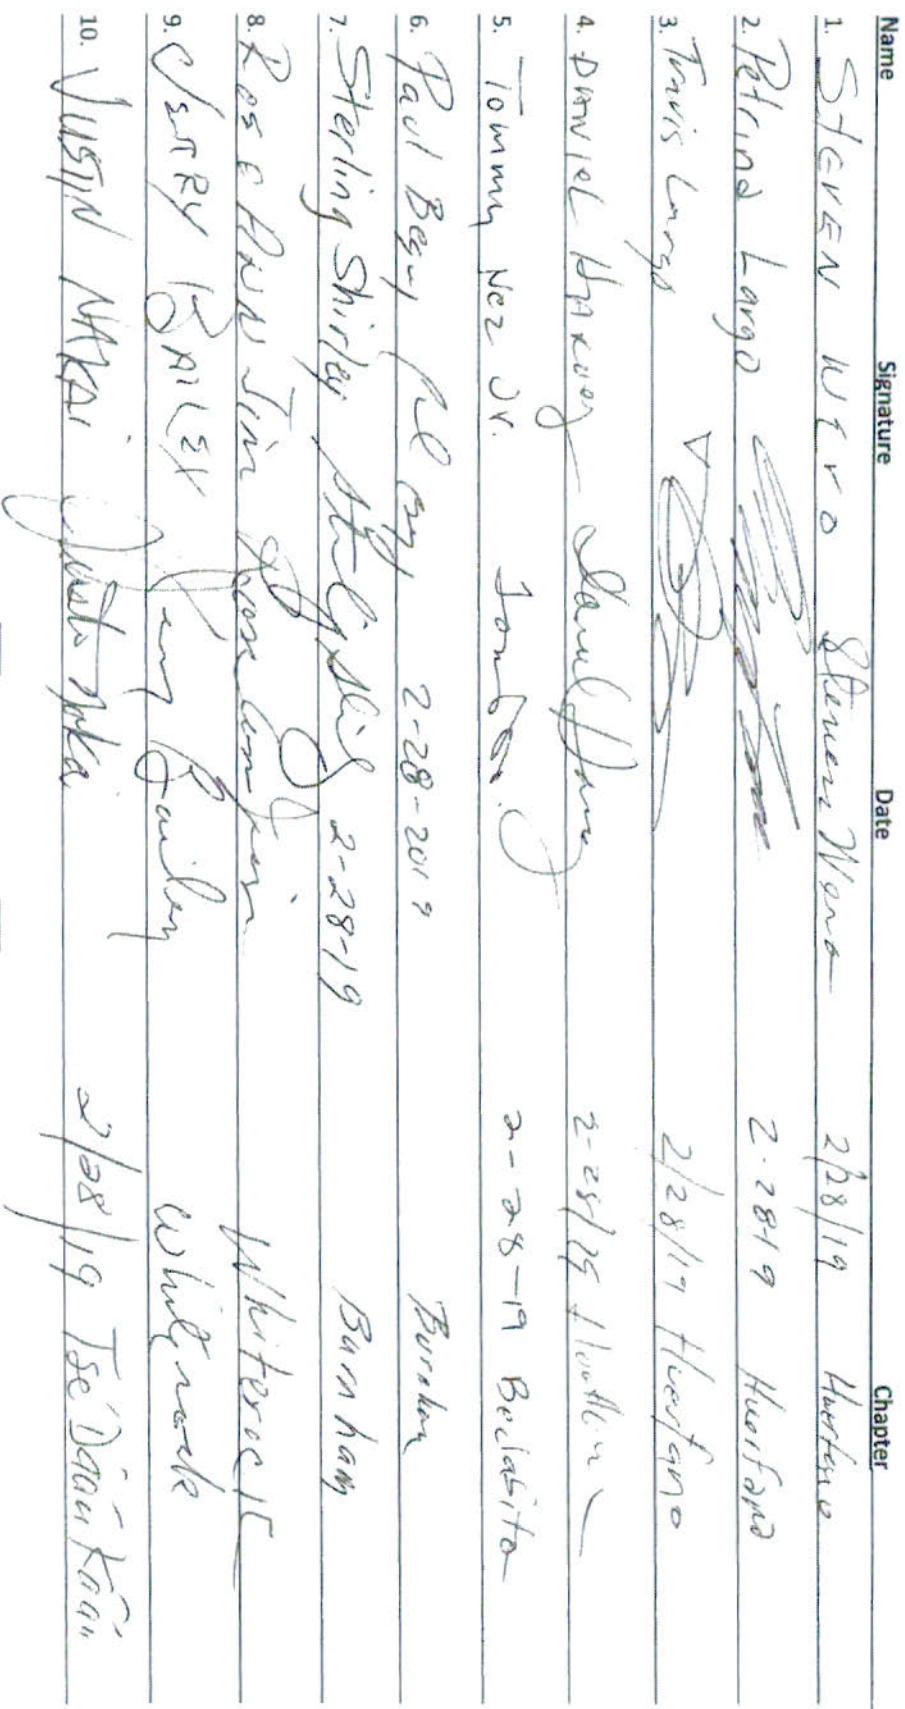 Name Signature Date Chapter
1. STEVEN Wero Steven Wero 2/28/19 Huerfano
2. Petrina Largo 2-28-19 Huerfano
3. Travis Largo 2/28/19 Huerfano
4. DANIEL 2-28/19
5. Tommy Nez Jr. 2-28-19 Beclabito
6. Paul Begay 2-28-2019 Burnham
7. Sterling Shirley 2-28-19 Burnham
8. ROSE ANN Jim Rose Ann Jim Whiterock
9. JERRY BAILEY Jerry Bailey Whiterock
10. JUSTIN NAKAI Justin Nakai 2/28/19 Tsé Daa Kaan